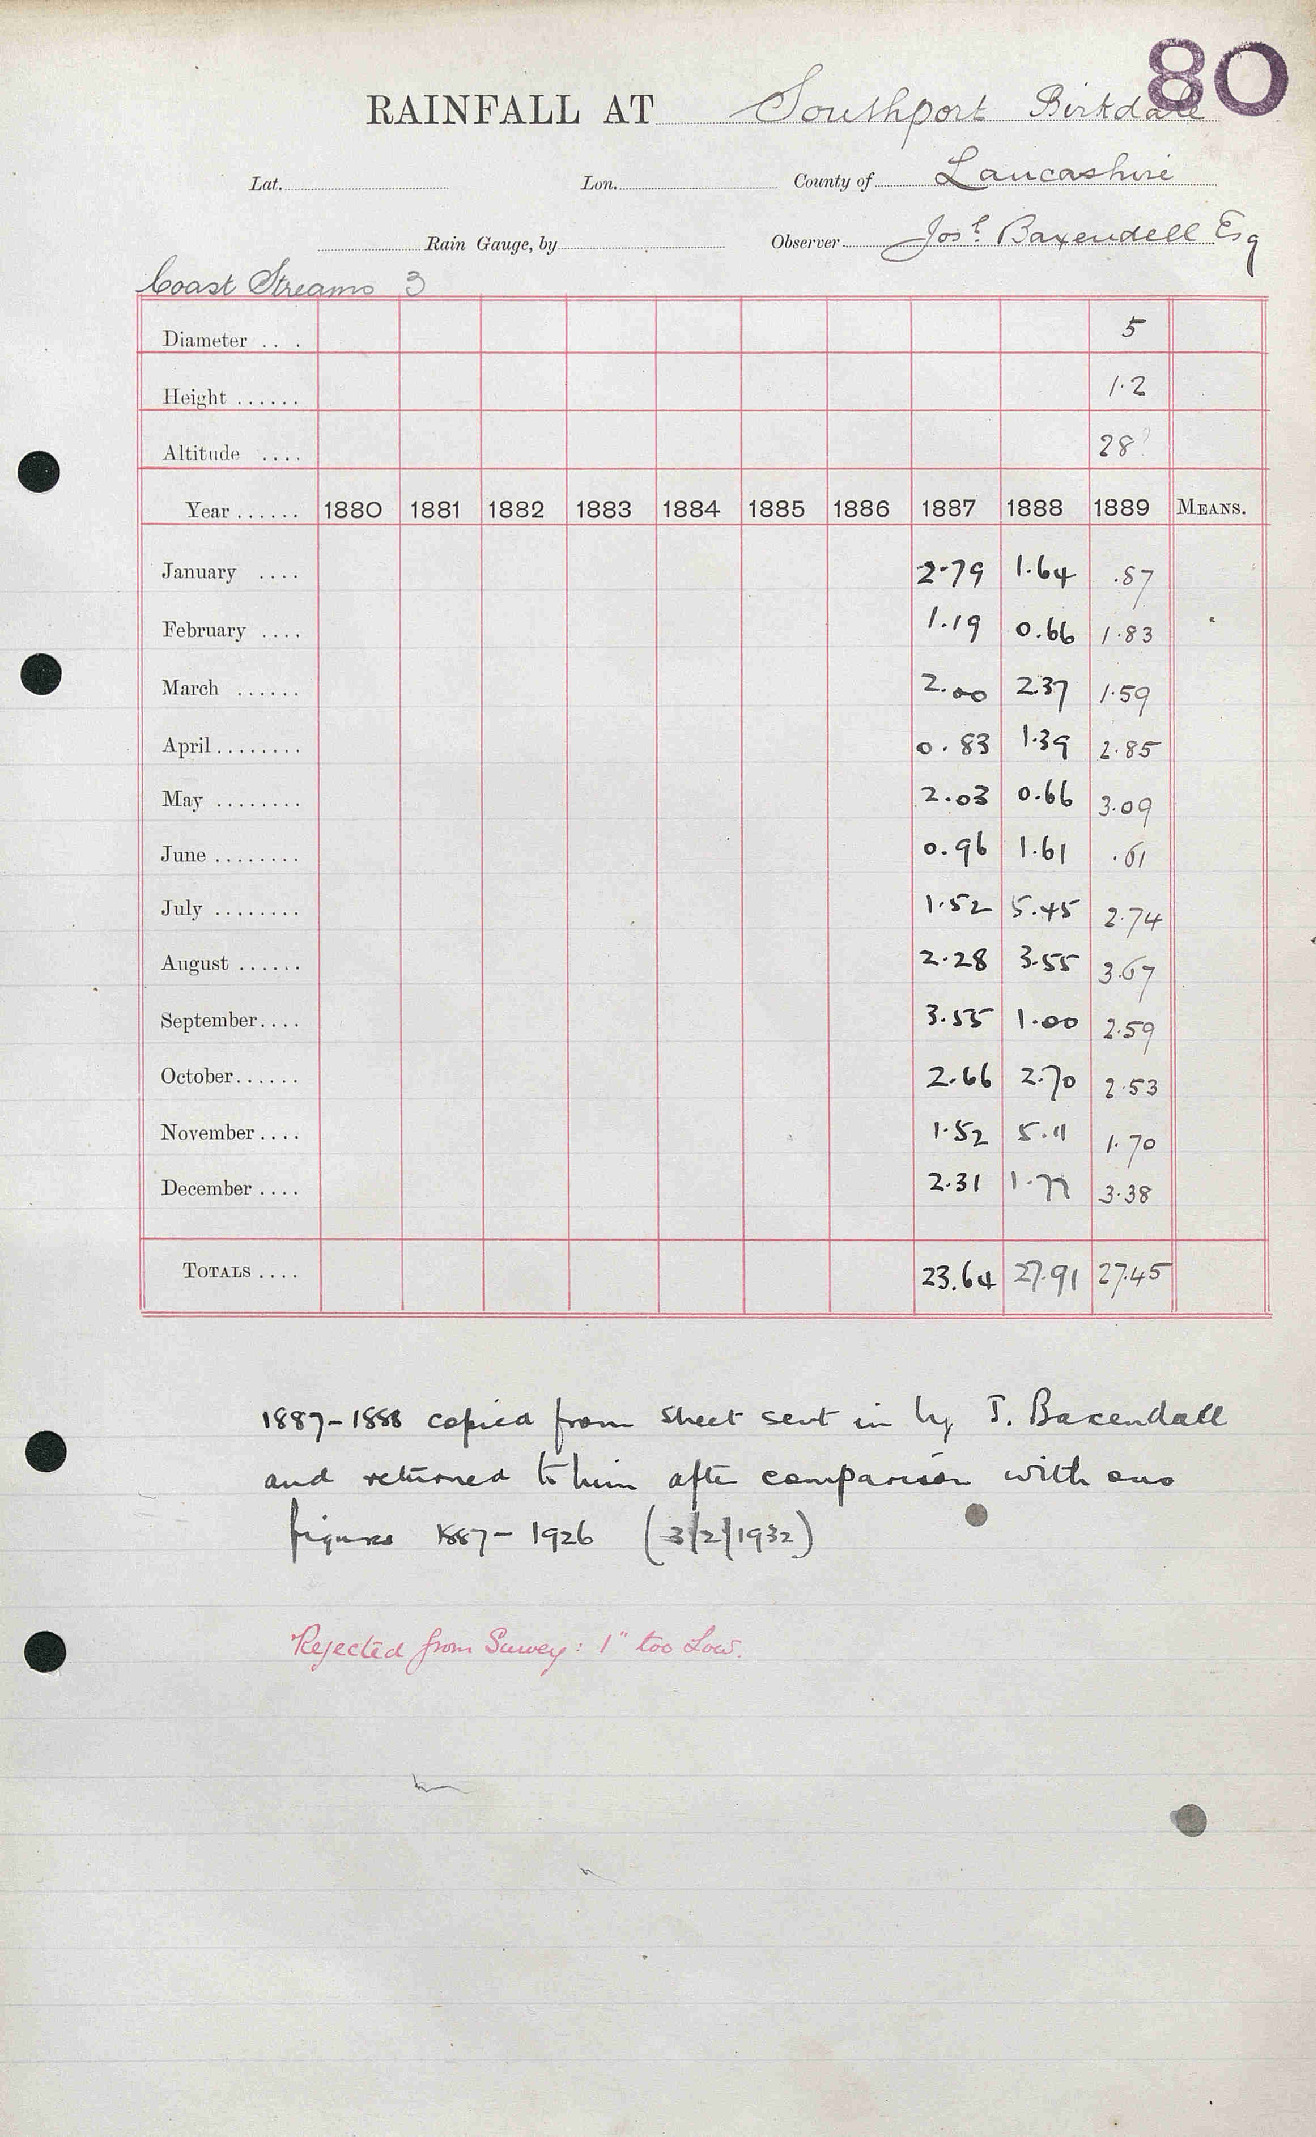 80
RAINFALL AT Southport Birkdale
Lat. Lon. County of Lancashire
Rain Gauge, by Observer Josh. Baxendell Esq
Coast Streams 3
Diameter .... 5
Height ...... 1.2
Altitude .... 28?
Year ...... 1880 1881 1882 1883 1884 1885 1886 1887 1888 1889 MEANS.
January .... 2.79 1.64 .87
February .... 1.19 0.66 1.83
March ...... 2.00 2.37 1.59
April ........ 0.83 1.39 2.85
May ........ 2.03 0.66 3.09
June ........ 0.96 1.61 .61
July ........ 1.52 5.45 2.74
August ...... 2.28 3.55 3.67
September .... 3.55 1.00 2.59
October ...... 2.66 2.70 2.53
November .... 1.52 5.11 1.70
December .... 2.31 1.77 3.38
TOTALS .... 23.64 27.91 27.45
1887-1888 copied from sheet sent in by J. Baxendall
and returned to him after comparison with our
figures 1887-1926 (3/2/1932)
Rejected from Survey: 1" too Low.